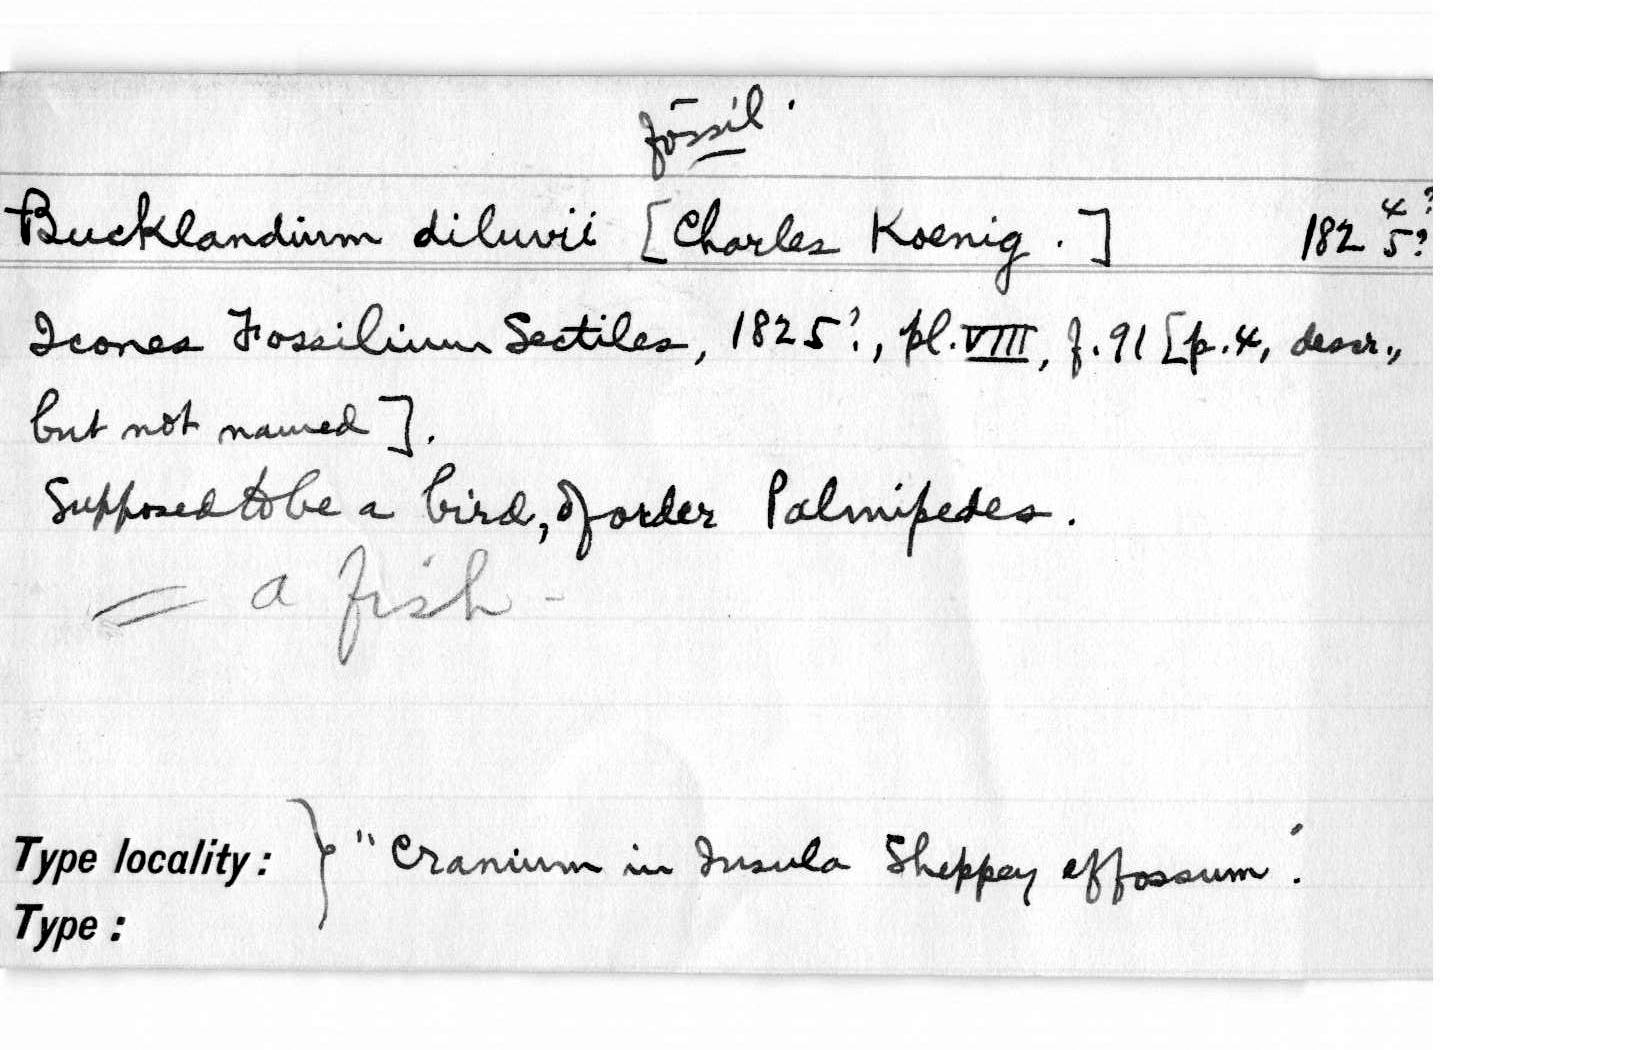 fossil.
Bucklandium diluvii [Charles Koenig.] 182 4? 5?
Icones Fossilium Sectiles, 1825?, pl. VIII, f. 91 [p. 4, descr.,
but not named].
Supposed to be a bird, of order Palmipedes.
= a fish -
Type locality: } "Cranium in Insula Sheppey effossum".
Type: